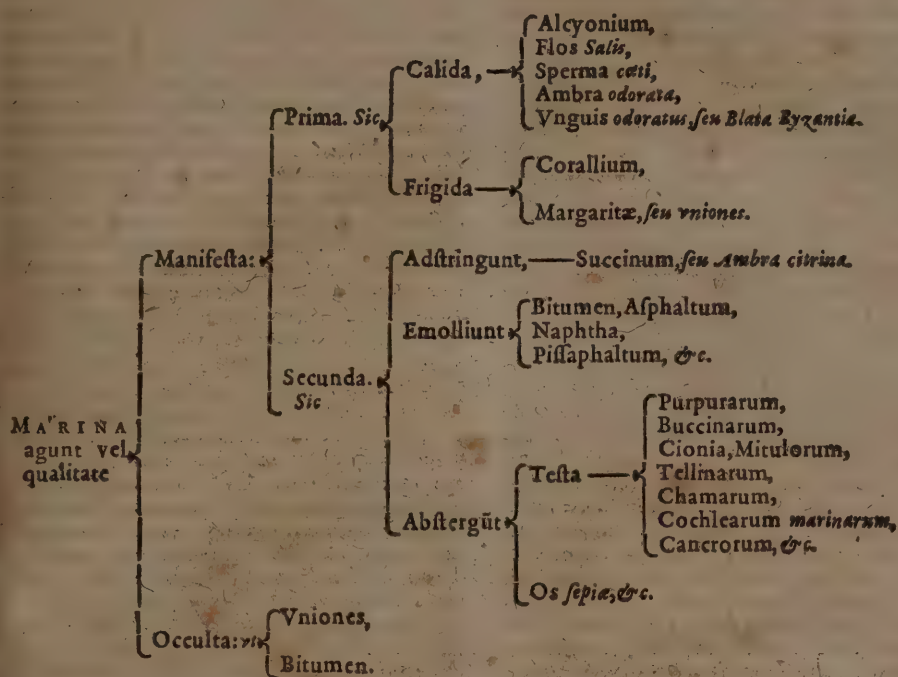 MARINA
agunt vel
qualitate
Manifeſta:
Prima. Sic
Calida,
Alcyonium,
Flos Salis,
Sperma cœti,
Ambra odorata,
Vnguis odoratus, ſeu Blata Byzantiæ.
Frigida
Corallium,
Margaritæ, ſeu vniones.
Secunda.
Sic
Adſtringunt,
Succinum, ſeu Ambra citrina.
Emolliunt
Bitumen, Aſphaltum,
Naphtha,
Piſſaphaltum, &c.
Abſtergūt
Teſta
Purpurarum,
Buccinarum,
Cionia, Mitulorum,
Tellinarum,
Chamarum,
Cochlearum marinarum,
Cancrorum, &c.
Os ſepiæ, &c.
Occulta: vt
Vniones,
Bitumen.